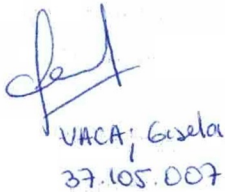 VACA; Gisela
37.105.007